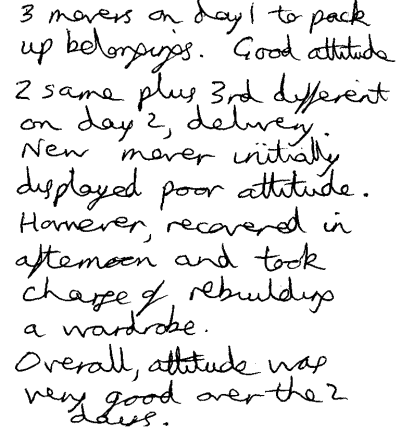 3 movers on day 1 to pack
up belongings. Good attitude
2 same plus 3rd different
on day 2, delivery.
New mover initially
displayed poor attitude.
However, recovered in
afternoon and took
charge of rebuilding
a wardrobe.
Overall, attitude was
very good over the 2
days.